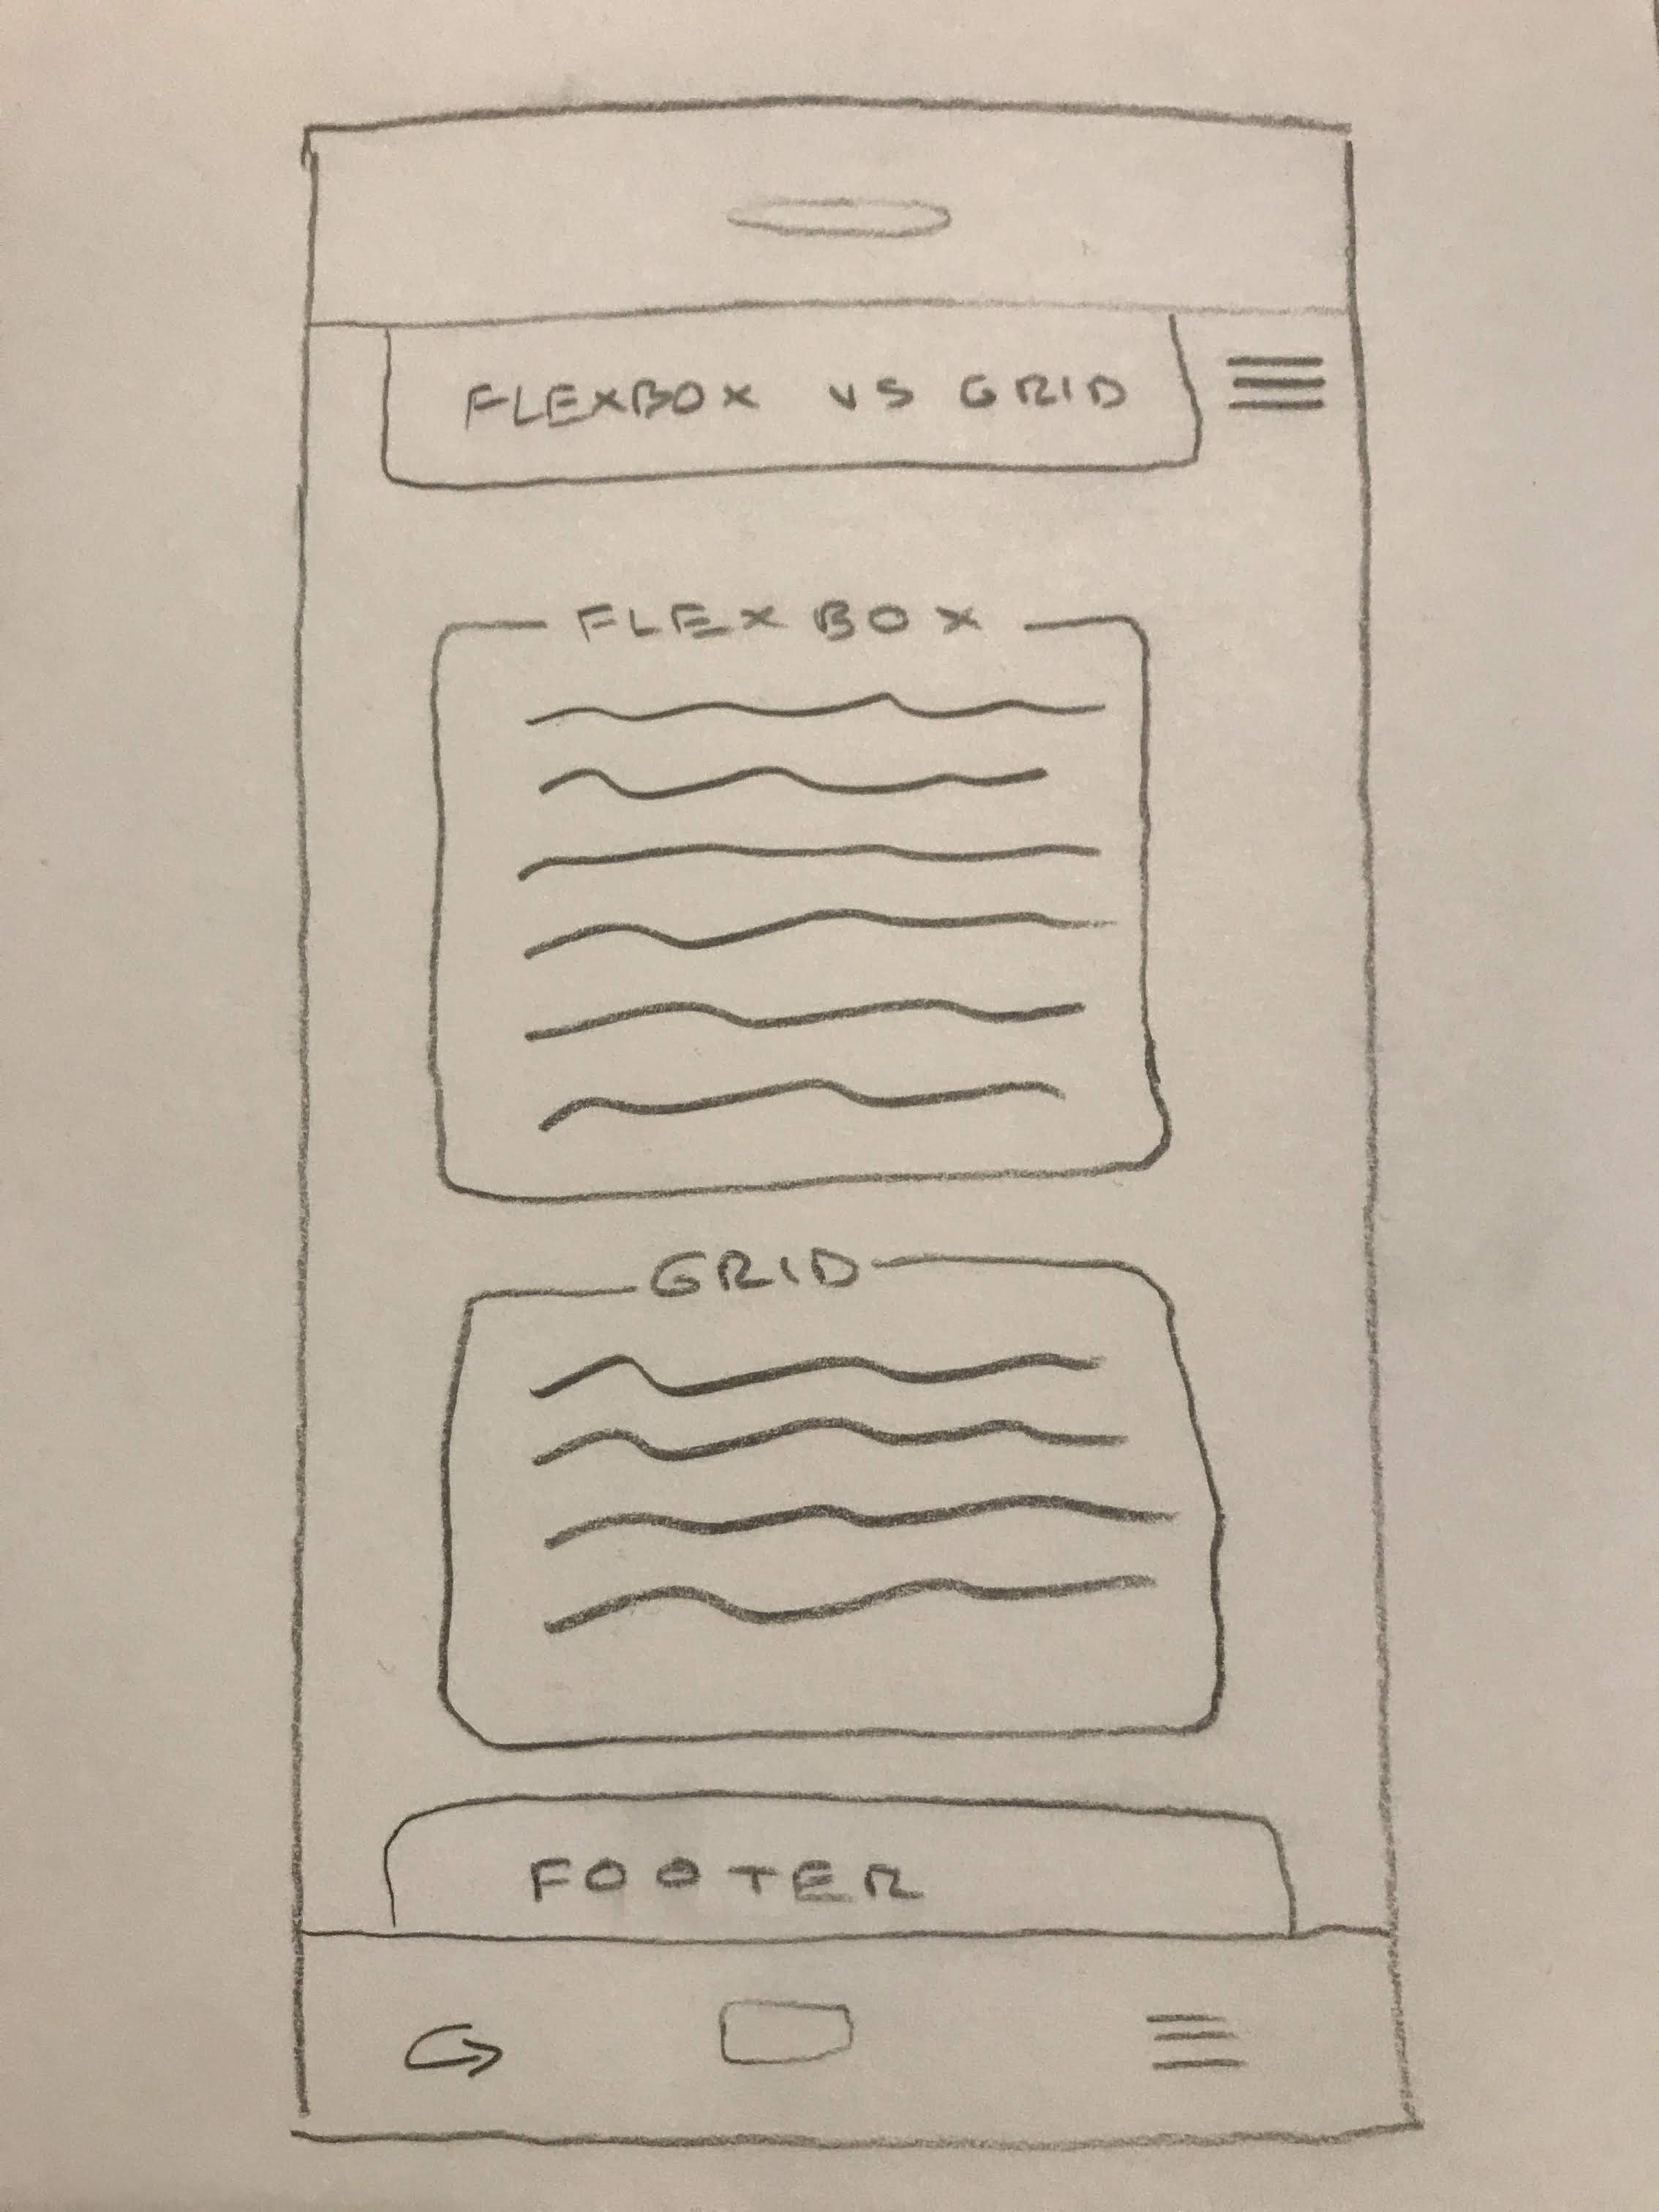 FLEXBOX VS GRID
FLEXBOX
GRID
FOOTER